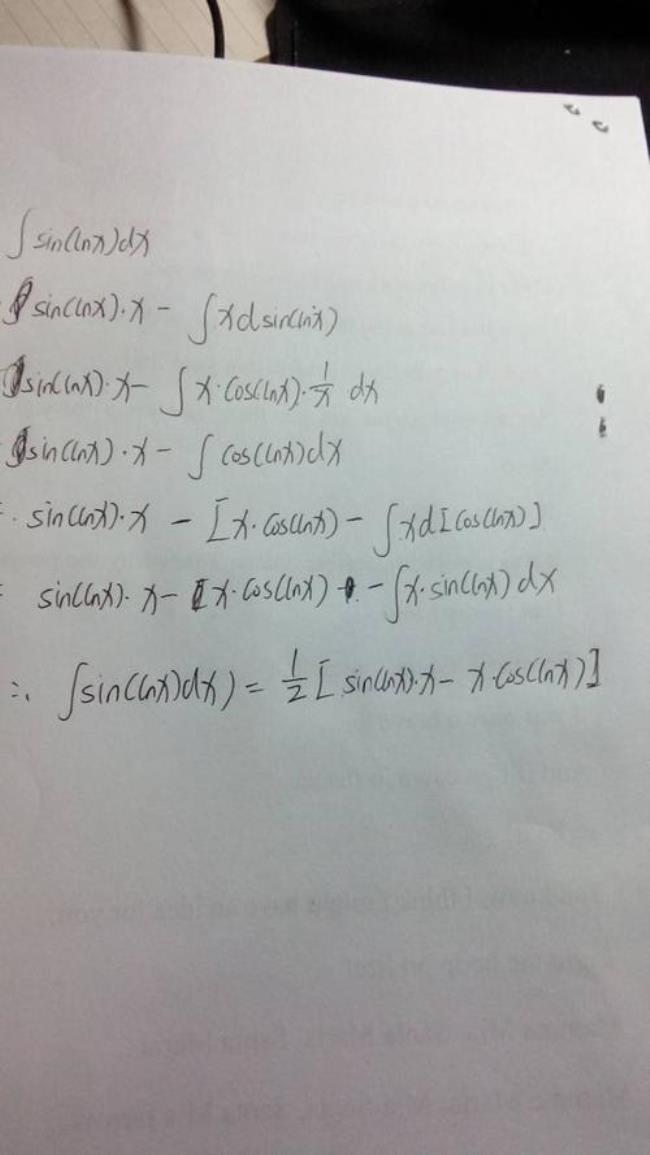 ∫ sin(lnx)dx
sin(lnx)·x - ∫xdsin(lnx)
sin(lnx)·x - ∫x·cos(lnx)·1/x dx
sin(lnx)·x - ∫cos(lnx)dx
= sin(lnx)·x - [x·cos(lnx) - ∫xd[cos(lnx)]
= sin(lnx)·x - [x·cos(lnx) - ∫x·sin(lnx)dx
∴ ∫sin(lnx)dx) = 1/2[sin(lnx)·x - x·cos(lnx)]